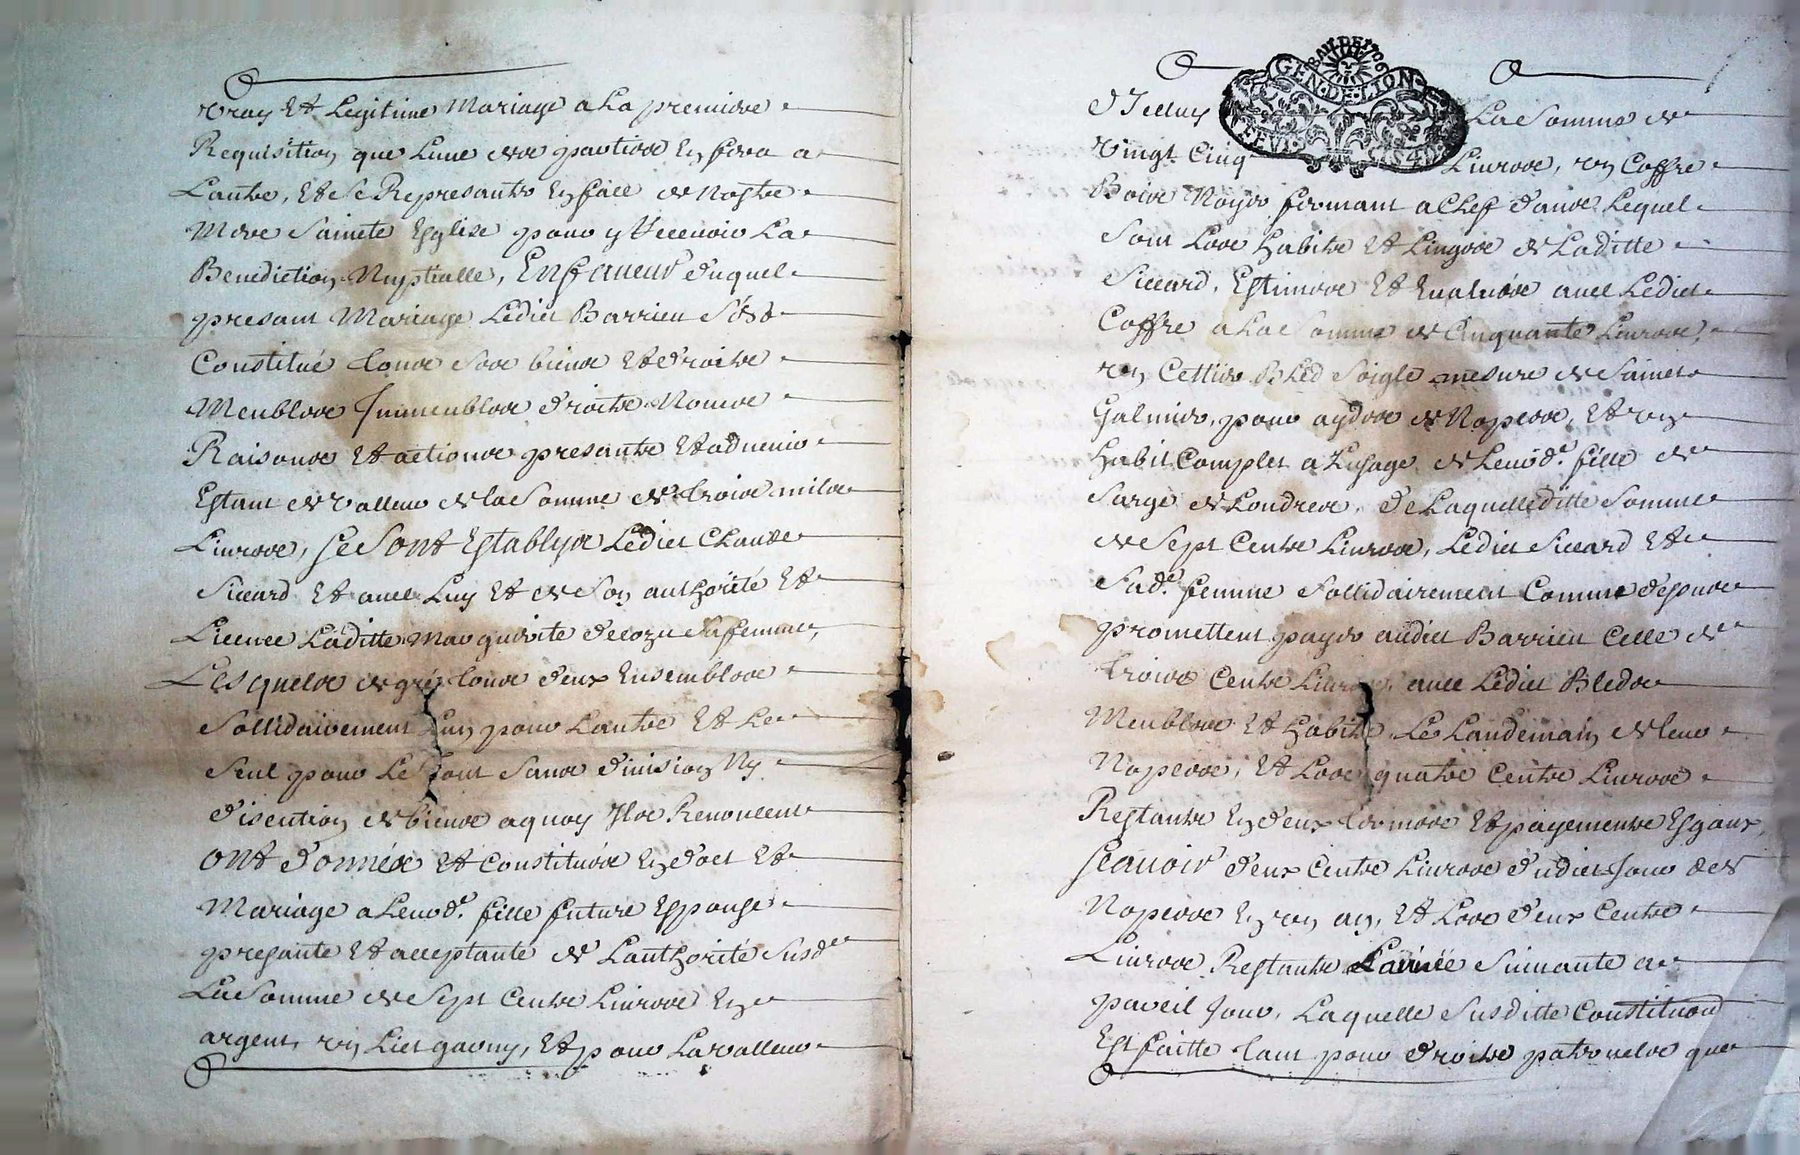 vray Et Legitime Mariage a La premiere
Requisition que Lune des parties En fera a
Lautre, Et se Representer En face de Nostre
Mere Sainete Esglise pour y Recevoir La
Benediction Nuptialle, En faveur duquel
presant Mariage Ledict Barrieu S'est
Constitué Tous Ses biens Et droits
Meubles Immeubles droits Noms
Raisons Et actions presants Et advenir
Estant de valleur de la Somme de trois mils
Livres, Se Sont Establys Ledict Claude
Siccard Et avec Luy Et de Son authorité Et
Licence Laditte Marguerite decozu Sa femme,
Lesquels de gré tous deux Ensembles
Sollidairement Lun pour Lautre Et Le
Seul pour Le tout Sans division Ny
discution de biens a quoy Ils Renoncent
Ont données Et Constitués En doct Et
Mariage a Leurd.e fille future Espouse
presante Et acceptante de Lauthorité Susd.
La Somme de Sept Cents Livres En
argent, un Lict garny, Et pour La valleur
GEN·DE·LION
d'Icelluy La Somme de
Vingt Cinq Livres, un Coffre
Bois Noyer fermant a Clef dans Lequel
Sont Les habits Et Linges de Laditte
Siccard, Estimes Et Evalués avec Ledict
Coffre a La Somme de Cinquante Livres,
un Cettier Bled Soigle mesure de Sainct
Galmier, pour ayder de Nopces, Et un
habit Complet a Lusage de Leurd.e fille de
Sarge de Londres, de Laquelleditte Somme
de Sept Cents Livres, Ledict Siccard Et
Sad.e femme Sollidairement Comme dessus
promettent payer audict Barrieu Celle de
trois Cents Livres, avec Ledict Bled
Meubles Et habits Le Landemain de leur
Nopces, Et Les quatre Cents Livres
Restants En deux termes Et payements Esgaux,
Scavoir deux Cents Livres dudict Jour des
Nopces En un an, Et Les deux Cents
Livres Restants Lannée Suivante a
pareil Jour, Laquelle Susditte Constitution
Est faitte tant pour droits paternels que